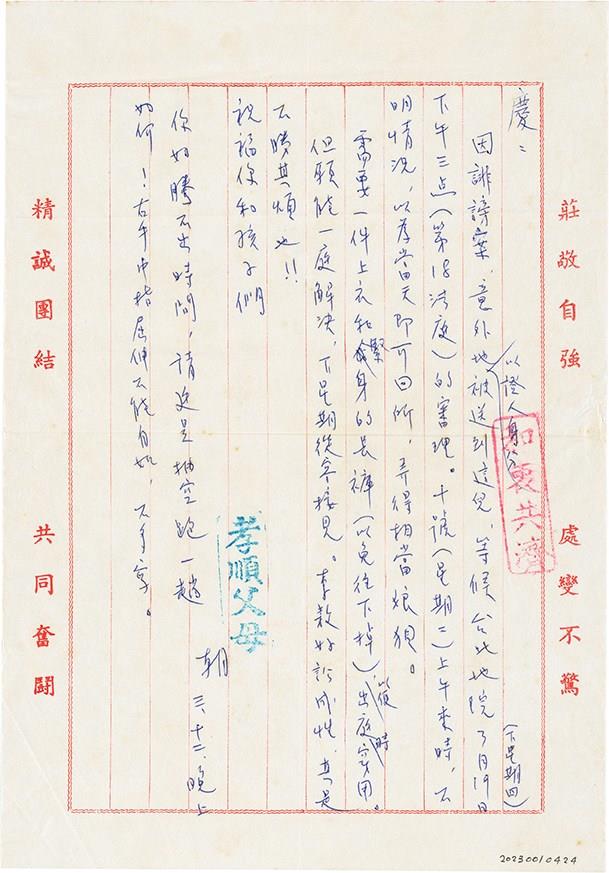 莊敬自強 處變不驚
慶:
因誹謗案,意外地以證人身分被送到這兒,等候台北地院3月19日(下星期四)
下午三点(第18法庭)的審理。十號(星期二)上午來時,不
明情況,以為當天即可回所,弄得相當狼狽。
需要一件上衣和緊身的長褲(以免往下掉)以便出庭時穿用。
但願能一庭解決,下星期從容接見。李敖好訟成性,真是
不勝其煩也!!
祝福你和孩子們
你如騰不出時間,請 抽空跑一趟
如何!右手中指屈伸不能自如,不多寫。
朝 三、十二、晚上
和衷共濟
孝順父母
精誠團結 共同奮鬪
20230010424